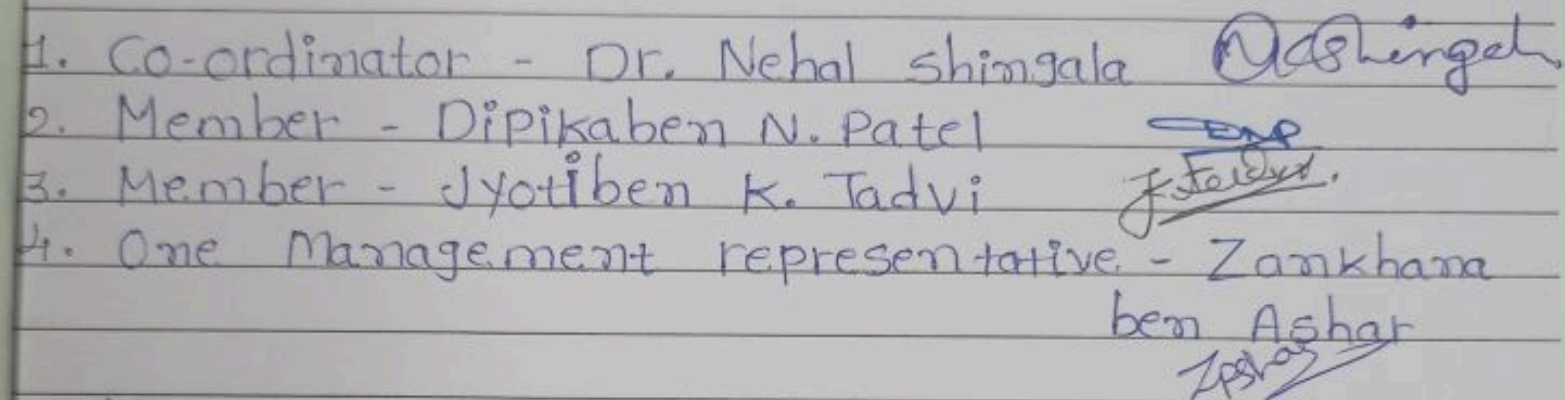 1. Co-ordinator - Dr. Nehal Shingala
2. Member - Dipikaben N. Patel
3. Member - Jyotiben K. Tadvi
4. One Management representative - Zankhana
ben Ashar